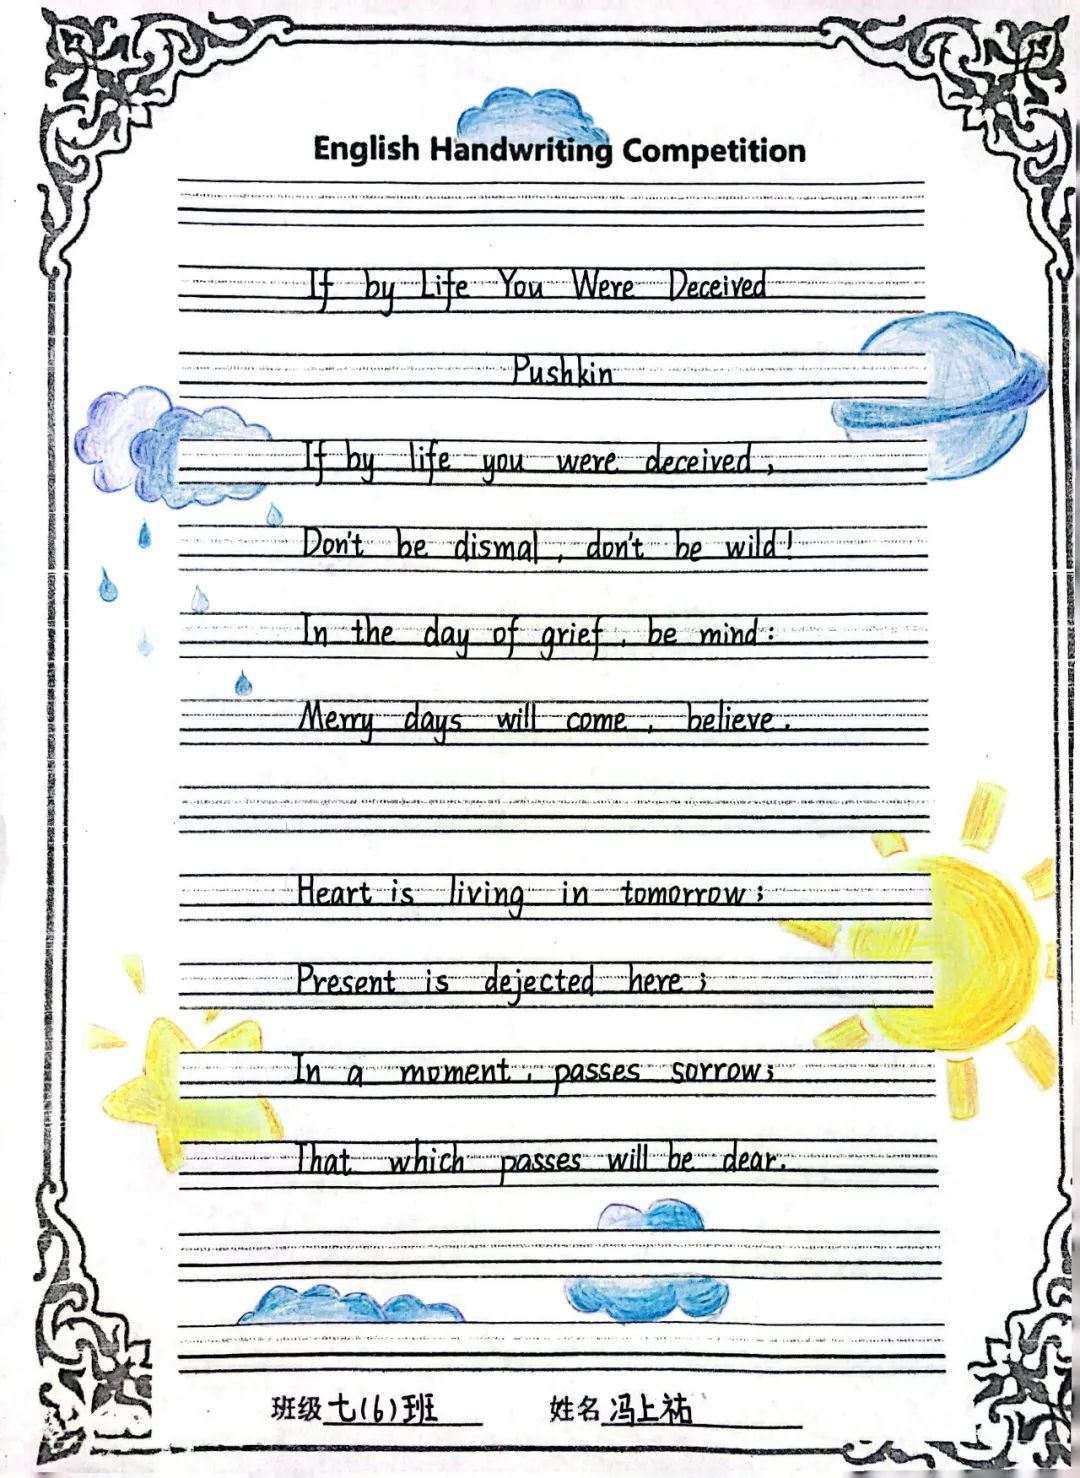 English Handwriting Competition
If by Life You Were Deceived
Pushkin
If by life you were deceived,
Don't be dismal, don't be wild!
In the day of grief, be mind:
Merry days will come, believe.
Heart is living in tomorrow;
Present is dejected here;
In a moment, passes sorrow;
That which passes will be dear.
班级 七(6)班 姓名 冯上祐